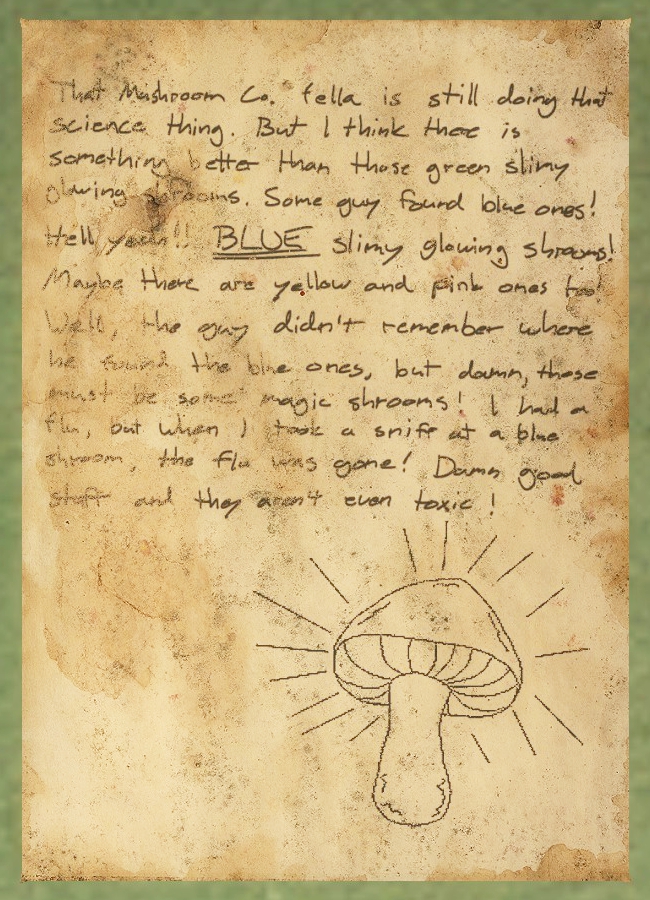 That Mushroom Co. fella is still doing that
science thing. But I think there is
something better than those green slimy
glowing shrooms. Some guy found blue ones!
Hell yeah!! BLUE slimy glowing shrooms!
Maybe there are yellow and pink ones too!
Well, the guy didn't remember where
he found the blue ones, but damn, those
must be some magic shrooms! I had a
flu, but when I took a sniff at a blue
shroom, the flu was gone! Damn good
stuff and they aren't even toxic!